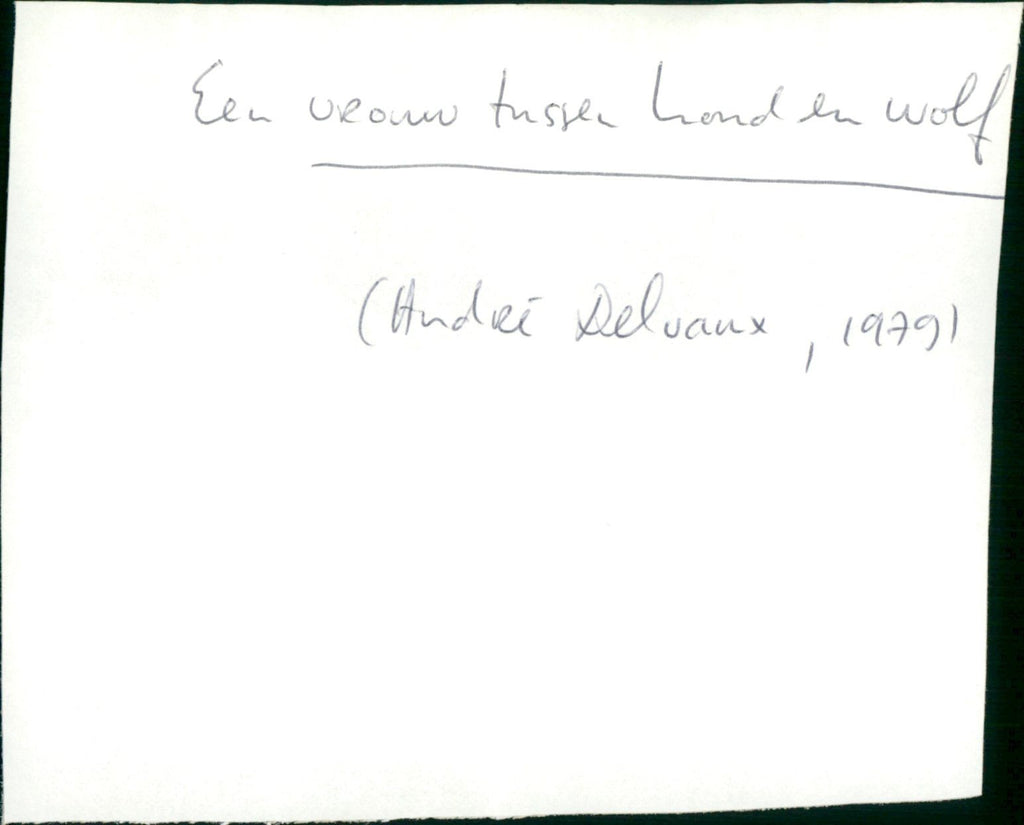 Een vrouw tussen hond en wolf
(André Delvaux, 1979)